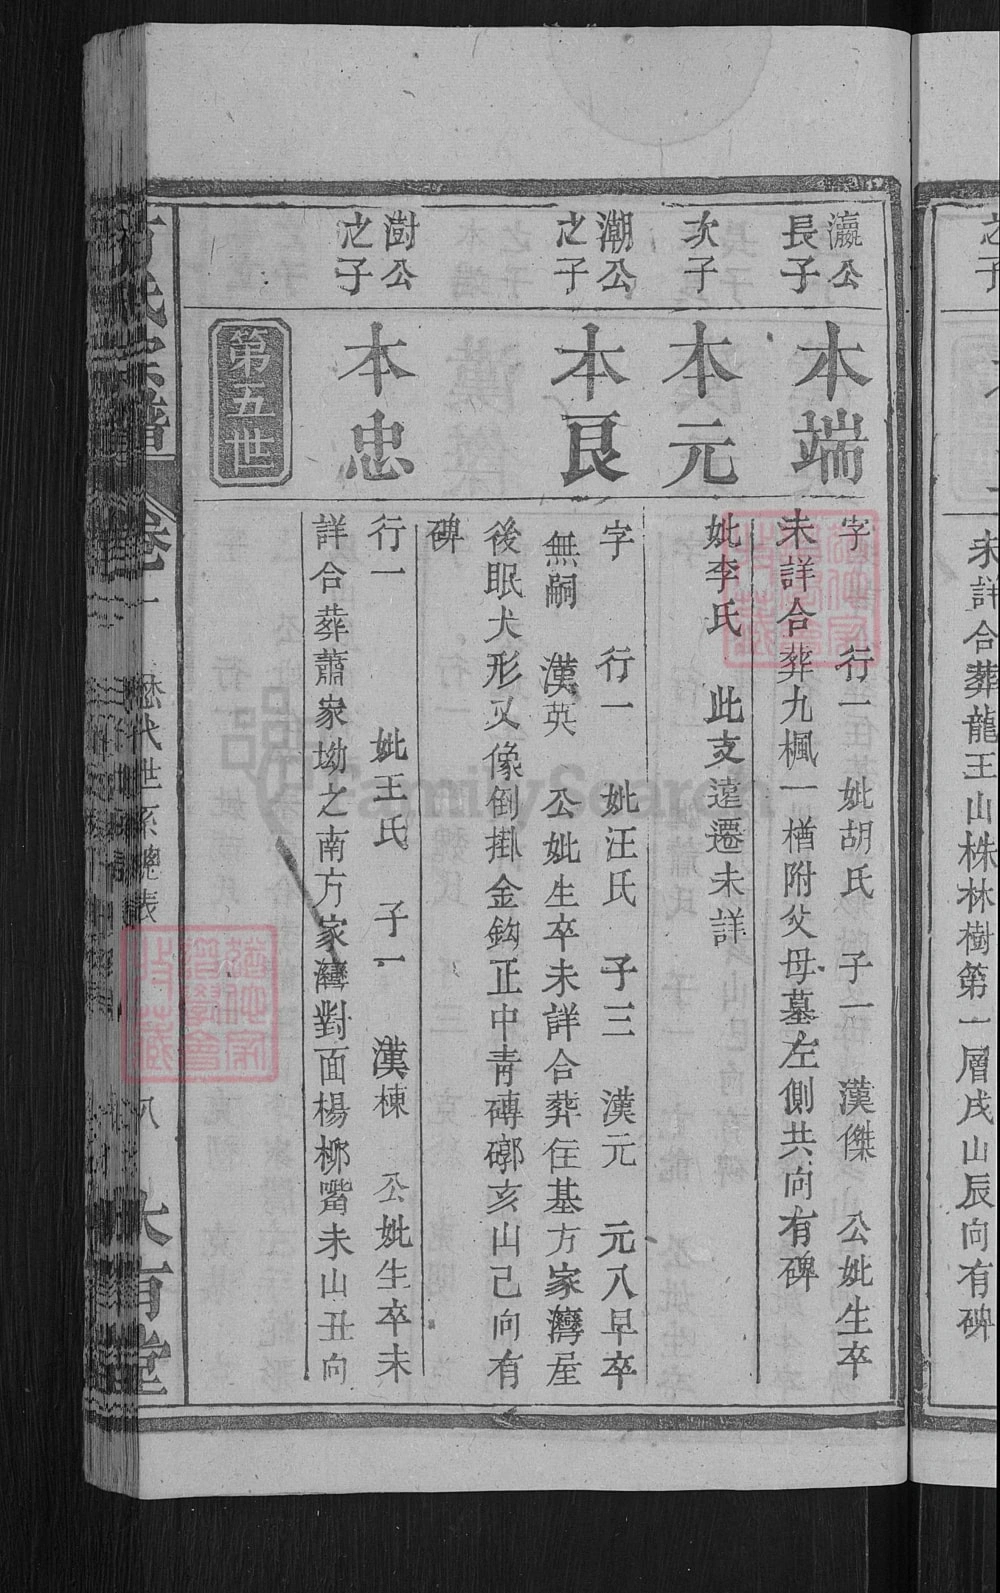 之子
未詳合葬龍王山株林樹第一層戌山辰向有碑
瀛公
長子
本端
字 行一 妣胡氏 子一 漢傑 公妣生卒
未詳合葬九楓一榰附父母墓左側共向有碑
次子
本元
妣李氏 此支遠遷未詳
潮公
之子
本良
字 行一 妣汪氏 子三 漢元 元八早卒
無嗣 漢英 公妣生卒未詳合葬住基方家灣屋
後眠犬形又像倒掛金鈎正中青磚槨亥山己向有
碑
澍公
之子
本忠
行一 妣王氏 子一 漢棟 公妣生卒未
詳合葬蕭家坳之南方家灣對面楊柳嘴未山丑向
第五世
氏宗譜 卷一 歷代世系總表 八 大有堂
FamilySearch